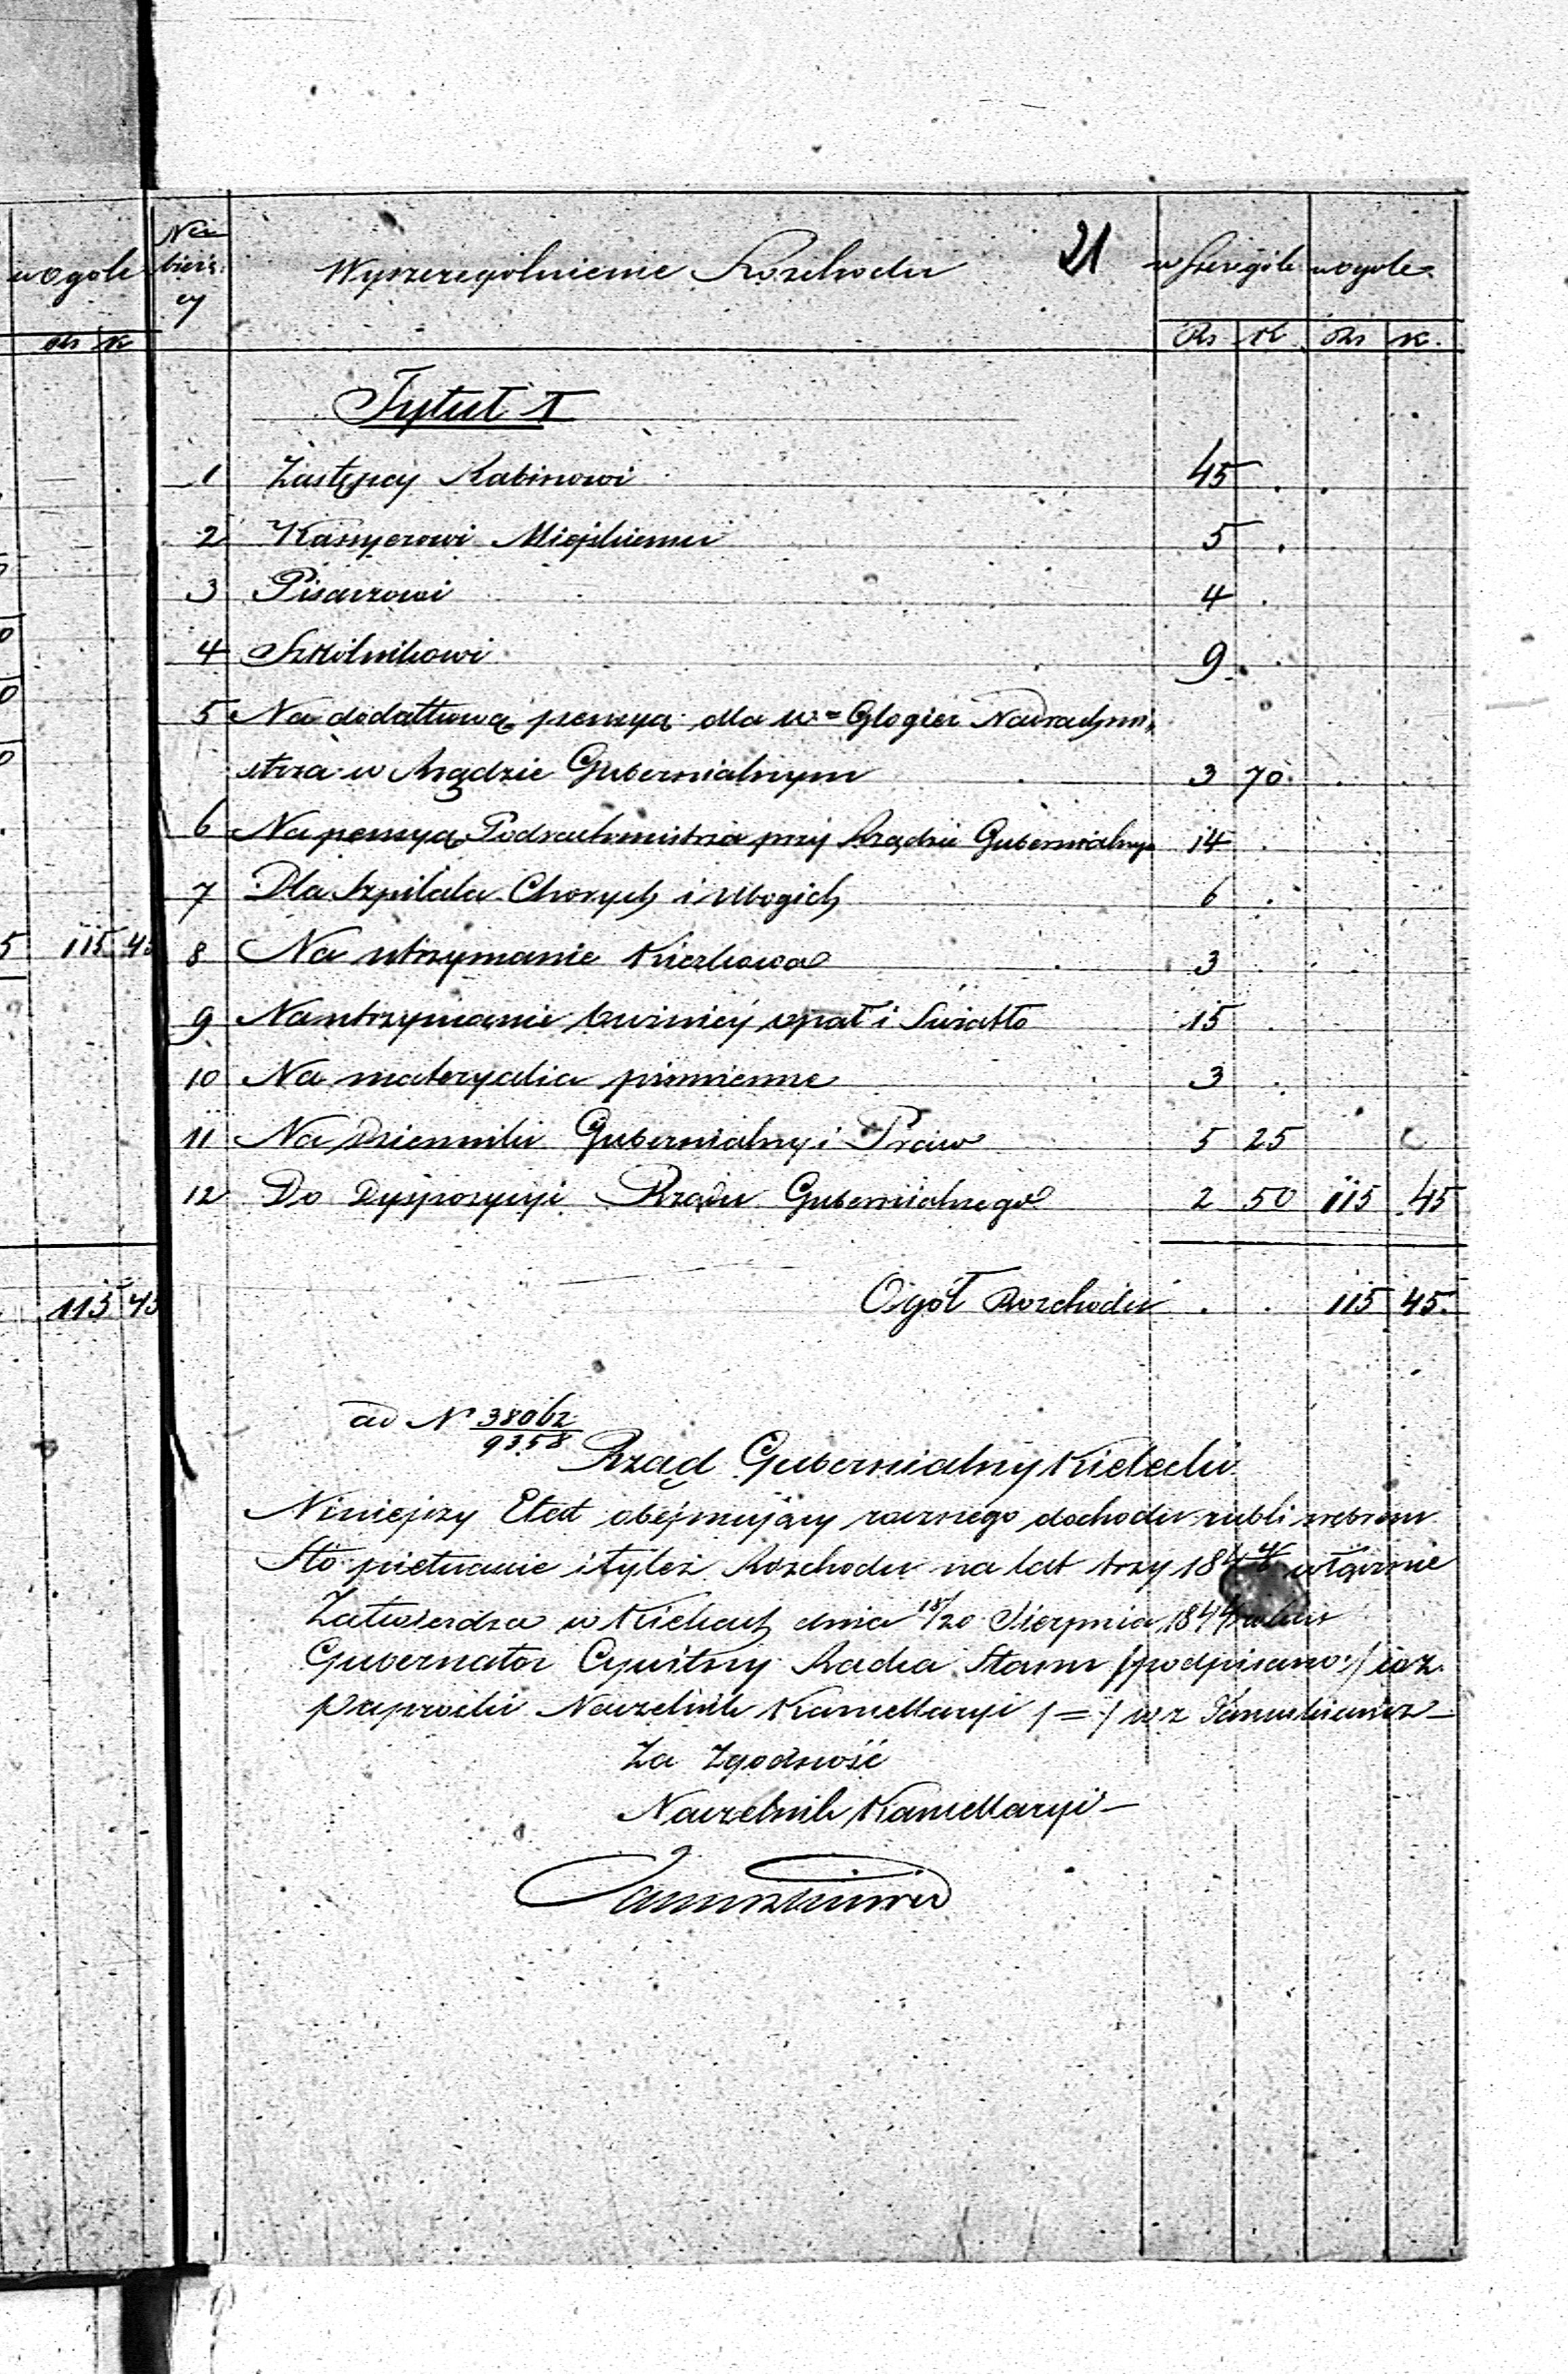 w ogóle
Rs K
5 115 45
115 45
Nr bieżą: cy Wyszczególnienie Rozchodu 21 w szczególe w ogóle
Rs K Rs K.
Tytuł I
1 Zastępcy Rabinowi 45 . .
2 Kassyerowi Miejskiemu 5 .
3 Pisarzowi 4 .
4 Szkolnikowi 9 .
5 Na dodatkową pensyą dla W= Glogier Nadrachmi,
strza w Rządzie Gubernialnym 3 70
6 Na pensyą Podrachmistrza przy Rządzie Gubernialnym 14 .
7 Dla Szpitala Chorych i Ubogich 6 .
8 Na utrzymanie Kirchowa 3
9 Na utrzymanie Buźnicy opał i Światło 15
10 Na materyalia piśmienne 3 .
11 Na Dziennik Gubernialny i Praw 5 25
12 Do Dyspozycyi Rządu Gubernialnego 2 50 115 45
Ogół Rozchodu . . 115 45.
ad N 38062/9358
Rząd Gubernialny Kielecki
Niniejszy Etat obejmujący rocznego dochodu rubli srebrem
Sto pietnaście i tyleż Rozchodu na lat trzy 184 włącznie
Zatwierdza w Kielcach dnia 18/20 Sierpnia 1844
Gubernator Cywilny Radca Stanu /podpisano:/
Paprocki Naczelnik Kancellaryi /=/ w z Januszkiewicz
Za Zgodność
Naczelnik Kancellaryi
Januszkiewicz